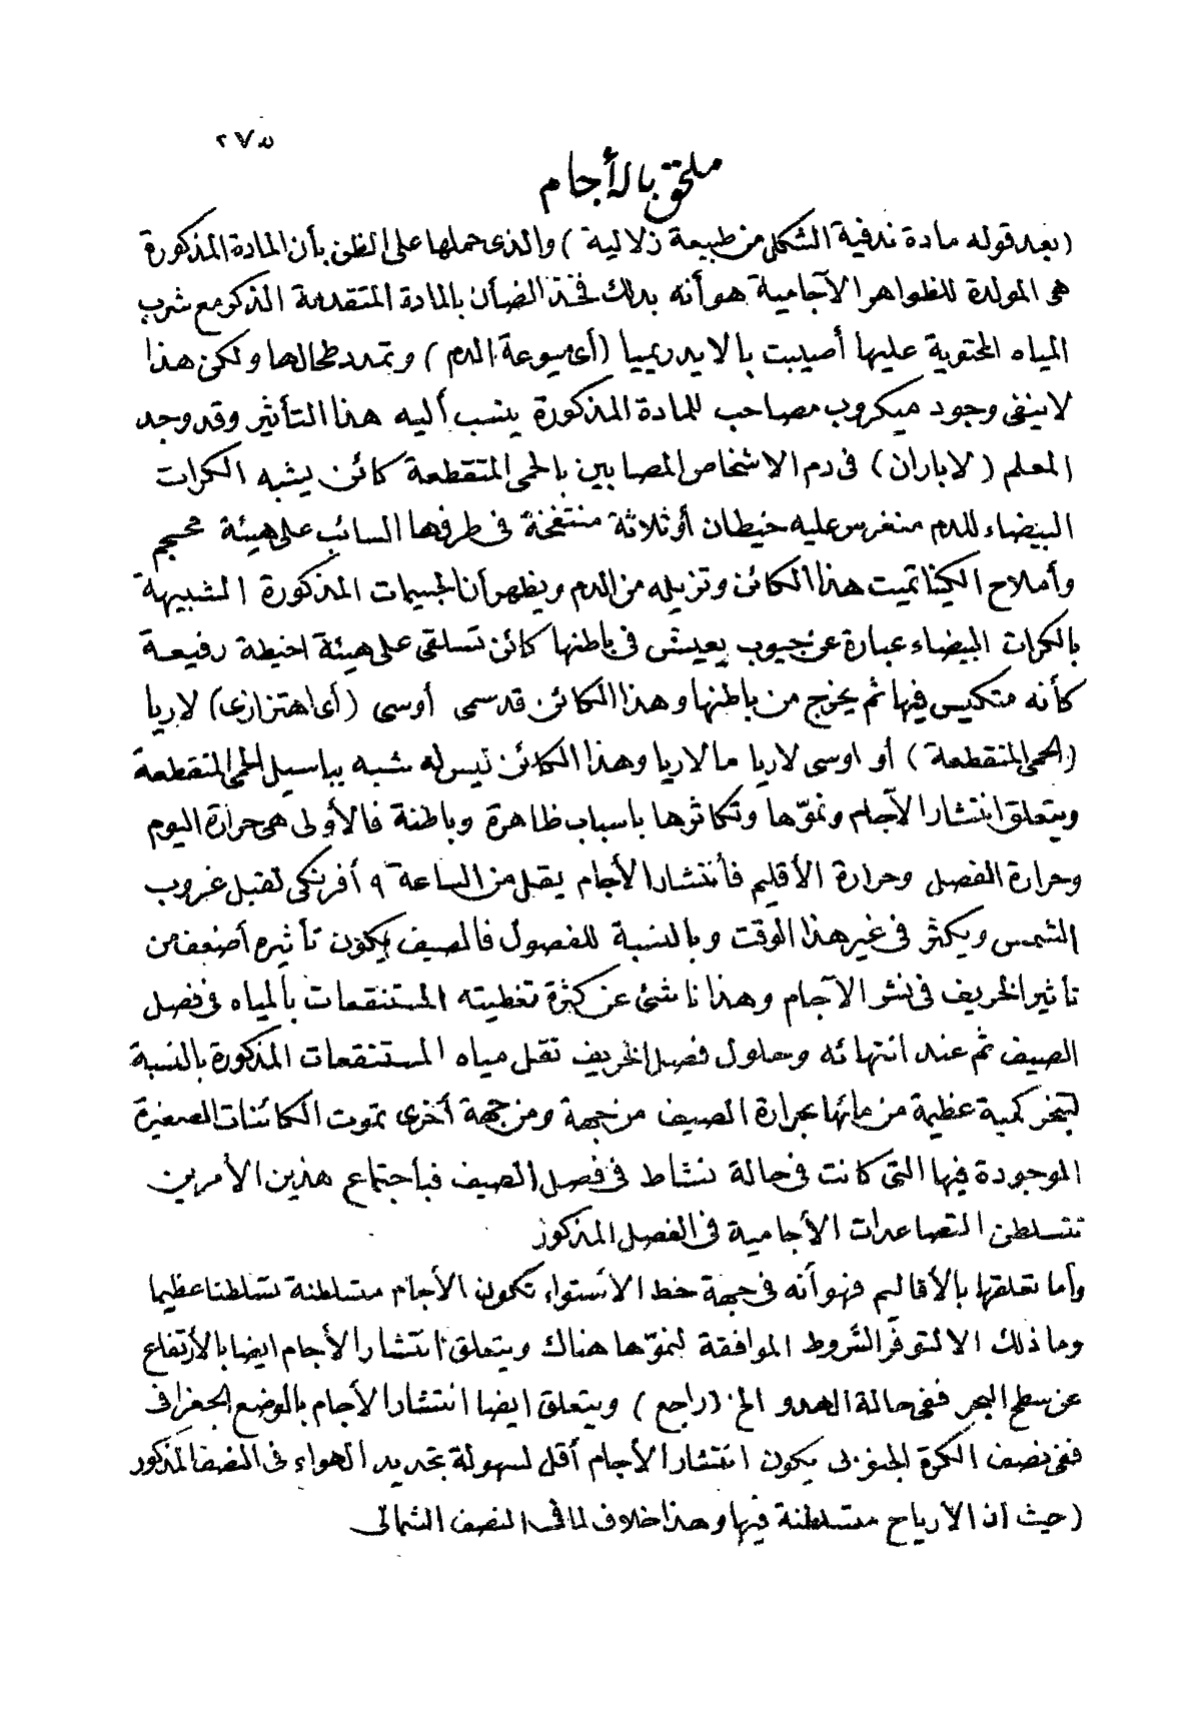 ٢٧٥
ملحق بالأجام
(بعد قوله مادة ندفية الشكل من طبيعة زلالية) والذى حملها على الظن بأن المادة المذكورة
هى المولدة للظواهر الآجامية هو أنه بدلك فخذ الضأن بالمادة المتقدمة الذكر مع شرب
المياه المحتوية عليها أصيبت بالايدريميا (أى ميوعة الدم) وتمدد طحالها ولكن هذا
لاينفى وجود ميكروب مصاحب للمادة المذكورة ينسب أليه هذا التأثير وقد وجد
المعلم (لاباران) فى دم الاشخاص المصابين بالحمى المتقطعة كائن يشبه الكرات
البيضاء للدم منغرس عليه خيطان أو ثلاثة منتفخة فى طرفها السائب على هيئة محجم
وأملاح الكينا تميت هذا الكائن وتزيله من الدم ويظهر أن الجسيمات المذكورة الشبيهة
بالكرات البيضاء عبارة عن جيوب يعيش فى باطنها كائن تسلقى على هيئة اخيطة رفيعة
كأنه متكيس فيها ثم يخرج من باطنها وهذا الكائن قد سمى أوسى (أى اهتزازى) لاريا
(الحمى المتقطعة) أو اوسى لاريا مالاريا وهذا الكائن ليس له شبه بباسيل الحمى المتقطعة
ويتعلق انتشار الآجام ونموّها وتكاثرها باسباب ظاهرة وباطنة فالأولى هى حرارة اليوم
وحرارة الفصل وحرارة الأقليم فأنتشار الأجام يقل من الساعة ٩ أفرنكى لقبل غروب
الشمس ويكثر فى غير هذا الوقت وبالنسبة للفصول فالصيف يكون تأثيره أضعف من
تأثير الخريف فى نشر الآجام وهذا ناشئ عن كثرة تغطيته المستنقعات بالمياه فى فصل
الصيف ثم عند انتهائه وحلول فصل الخريف تقل مياه المستنقعات المذكورة بالنسبة
لتبخر كمية عظيمة من مائها بحرارة الصيف من جهة ومن جهة أخرى تموت الكائنات الصغيرة
الموجودة فيها التى كانت فى حالة نشاط فى فصل الصيف فبأجتماع هذين الأمرين
تتسلطن التصاعدات الأجامية فى الفصل المذكور
وأما تعلقها بالأقاليم فهو أنه فى جهة خط الاستواء تكون الأجام متسلطنة تسلطنا عظيما
وما ذلك الا لتوفر الشروط الموافقة لنموّها هناك ويتعلق انتشار الأجام ايضا بالأرتفاع
عن سطح البحر ففى حالة الهدو الخ (راجع) ويتعلق ايضا انتشار الأجام بالوضع الجغرافى
ففى نصف الكرة الجنوبى يكون انتشار الأجام أقل لسهولة تجديد الهواء فى النصف المذكور
(حيث ان الأرياح متسلطنة فيها وهذا خلاف لما فى النصف الشمالى